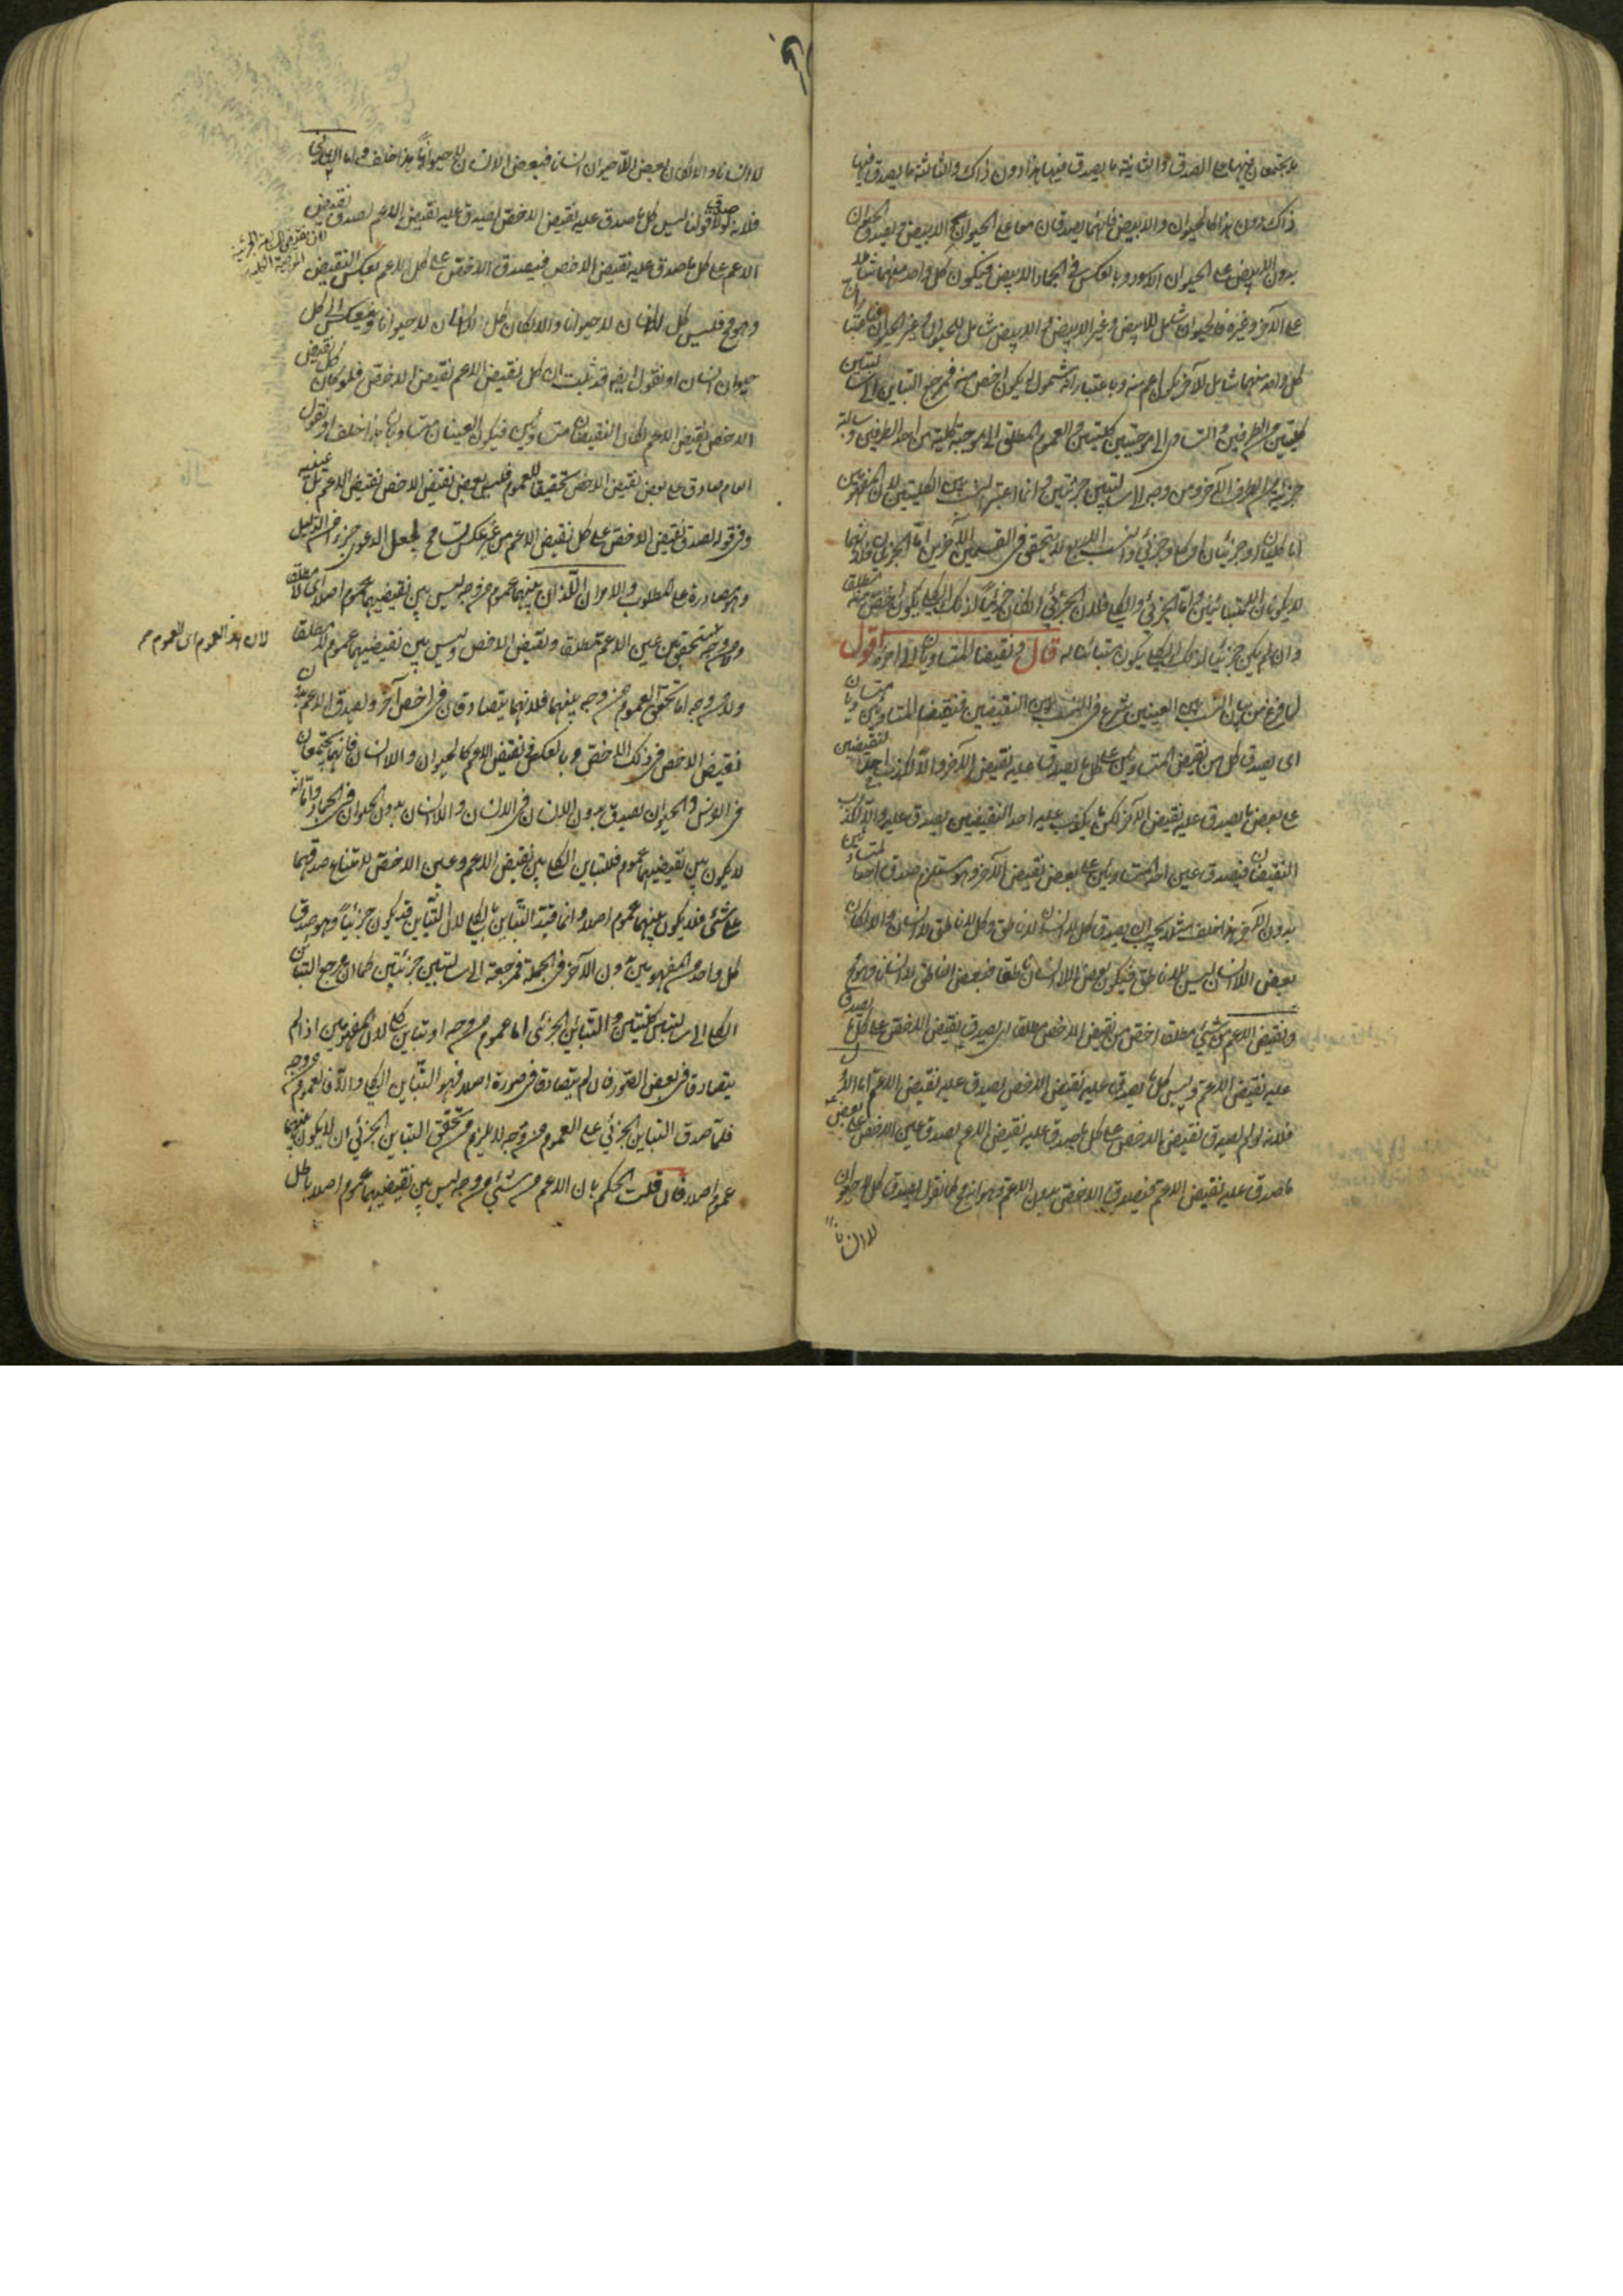 ما يجتمعان فيها على الصدق والثانية ما يصدق فيها هذا دون ذاك والثالثة ما يصدق فيها
ذاك دون هذا كالحيوان والابيض فانهما يصدقان معا على الحيوان الابيض ويصدق الحيوان
بدون الابيض على الحيوان الاسود وبالعكس في الجماد الابيض فيكون كل واحد منهما شاملا
على الآخر وغيره فالحيوان شامل للابيض وغير الابيض والابيض شامل للحيوان وغير الحيوان فباعتبار ان
كل واحد منهما شامل للآخر يكون اعم منه وباعتبار انه مشمول له يكون اخص منه فمرجع التباين الى سالبتين
كليتين من الطرفين والتساوي الى موجبتين كليتين والعموم المطلق الى موجبة كلية من احد الطرفين وسالبة
جزئية من الطرف الآخر ومن وجه الى سالبتين جزئيتين وانما اعتبر النسب بين الكليتين لان المفهومين
اما كليان او جزئيان او كلي وجزئي والنسب الاربع لا يتحقق في القسمين الآخرين اما الجزئيان فلانهما
لا يكونان الا متباينين واما الجزئي والكلي فلان الجزئي ان كان جزئيا لذلك الكلي يكون اخص منه مطلقا
وان لم يكن جزئيا لذلك الكلي يكون متباينا له قال ونقيضا المتساويان الى آخره اقول
لما فرغ من بيان النسب بين العينين شرع في النسب بين النقيضين فنقيضا المتساويين متساويان
اى يصدق كل من نقيضي المتساويين على كل ما يصدق عليه نقيض الآخر والا لكذب احد النقيضين
على بعض ما يصدق عليه نقيض الآخر لكن ما يكذب عليه احد النقيضين يصدق عليه والا لكذب
النقيضان فيصدق عين احد المتساويين على بعض نقيض الآخر وهو يستلزم صدق احد المتساويين
بدون الآخر هذا خلف مثلا يجب ان يصدق كل لا انسان لا ناطق وكل لا ناطق لا انسان والا لكان
بعض اللاانسان ليس بلا ناطق فيكون بعض اللاانسان ناطقا فبعض الناطق لا انسان وهو مح
ونقيض الاعم من شيء مطلقا اخص من نقيض الاخص مطلقا اى يصدق نقيض الاخص على كل ما يصدق
عليه نقيض الاعم وليس كل ما يصدق عليه نقيض الاخص يصدق عليه نقيض الاعم اما الاول
فلانه لو لم يصدق نقيض الاخص على كل ما يصدق عليه نقيض الاعم لصدق عين الاخص على بعض
ما صدق عليه نقيض الاعم فيصدق الاخص بدون الاعم وهو انه مح كما نقول يصدق كل لا حيوان
لا انسان
لا انسان والا لكان بعض اللاحيوان انسانا فبعض الانسان لا حيوانا هذا خلف واما الثاني
فلانه لو لا صدق قولنا ليس كل ما صدق عليه نقيض الاخص يصدق عليه نقيض الاعم لصدق نقيض
الاعم على كل ما صدق عليه نقيض الاخص فيصدق الاخص على كل الاعم بعكس النقيض
وهو مح فليس كل لا انسان لا حيوانا والا لكان كل لا انسان لا حيوانا وينعكس الى كل
حيوان انسان او نقول ايضا قد ثبت ان كل نقيض الاعم نقيض الاخص فلو كان كل نقيض
الاخص نقيض الاعم لكان النقيضان متساويين فيكون العينان متساويان هذا خلف او نقول
العام صادق على بعض نقيض الاخص تحقيقا للعموم فليس بعض نقيض الاخص نقيض الاعم بل عينه
وفي قوله لصدق نقيض الاخص على كل نقيض الاعم من غير عكس تسامح لجعل الدعوى جزءا من الدليل
وهو مصادرة على المطلوب والامران اللذان بينهما عموم من وجه ليس بين نقيضيهما عموم اصلا اى لا مطلقا
ولا من وجه لتحقق بين عين الاعم مطلقا ونقيض الاخص وليس بين نقيضيهما عموم لا مطلقا
ولا من وجه اما تحقق العموم من وجه بينهما فلانهما يتصادقان في اخص آخر ويصدق الاعم بدون
نقيض الاخص في ذلك الاخص وبالعكس في نقيض الاعم كالحيوان واللاانسان فانهما يجتمعان
في الفرس والحيوان يصدق بدون اللاانسان في الانسان واللاانسان بدون الحيوان في الجماد واما انه
لا يكون بين نقيضيهما عموم فللتباين الكلي بين نقيض الاعم وعين الاخص لامتناع صدقهما
على شيء فلا يكون بينهما عموم اصلا وانما قيد التباين بالكلي لان التباين قد يكون جزئيا وهو صدق
كل واحد من المفهومين بدون الآخر في الجملة فمرجعه الى سالبتين جزئيتين كما ان مرجع التباين
الكلي الى سالبتين كليتين والتباين الجزئي اما عموم من وجه او تباين كلي لان المفهومين اذا لم
يتصادقا في بعض الصور فان لم يتصادقا في صورة اصلا فهو التباين الكلي والا فالعموم من وجه
فلما صدق التباين الجزئي على العموم من وجه لا يلزم من تحقق التباين الجزئي ان لا يكون بينهما
عموم اصلا فان قلت الحكم بان الاعم من شيء من وجه ليس بين نقيضيهما عموم اصلا باطل
لان هذا العموم اى العموم من